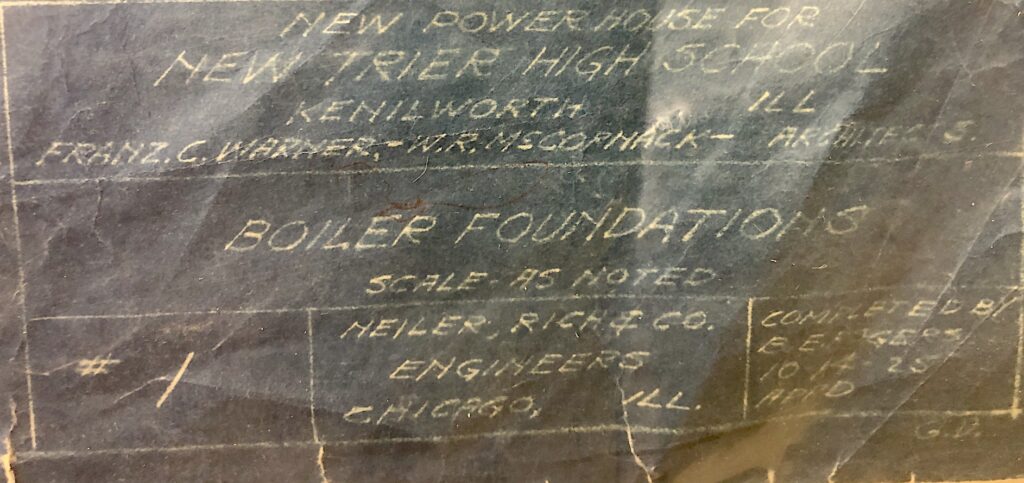 NEW POWER HOUSE FOR
NEW TRIER HIGH SCHOOL
KENILWORTH ILL
FRANZ. C. WARNER, - W.R. MCCORNACK - ARCHITECTS.
BOILER FOUNDATIONS
SCALE - AS NOTED
# 1
NEILER, RICH & CO.
ENGINEERS
CHICAGO, ILL.
COMPLETED BY
B.E.
10
APP'D
G.D.